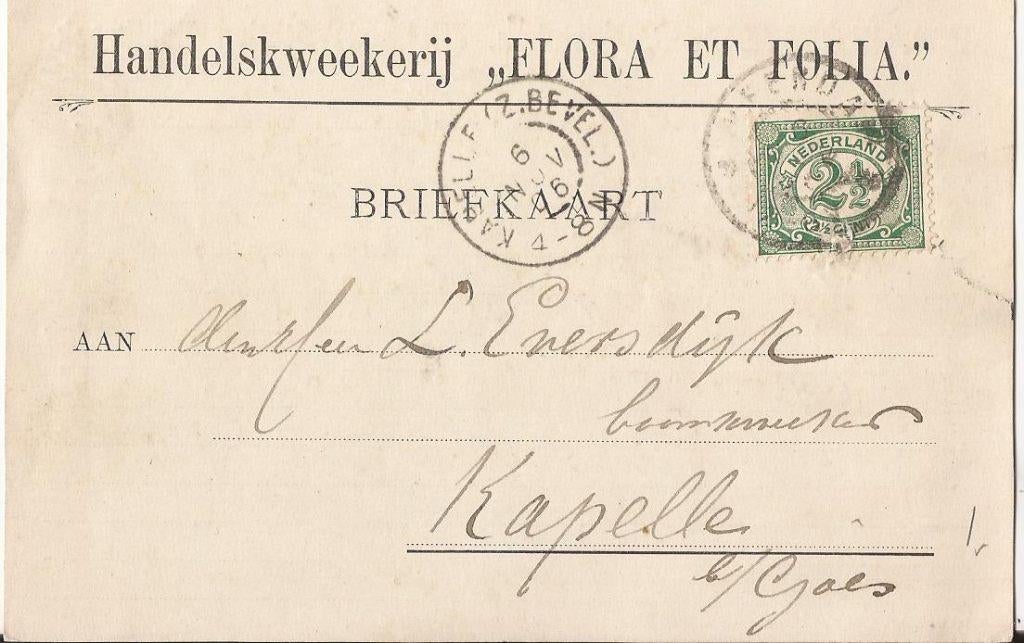 Handelskweekerij „FLORA ET FOLIA.”
KAPELLE (Z.BEVEL.)
6 NOV 96
4-8N
NEDERLAND
2½
BRIEFKAART
AAN den Heer L. Eversdijk
boomkweeker
Kapelle
b/Goes